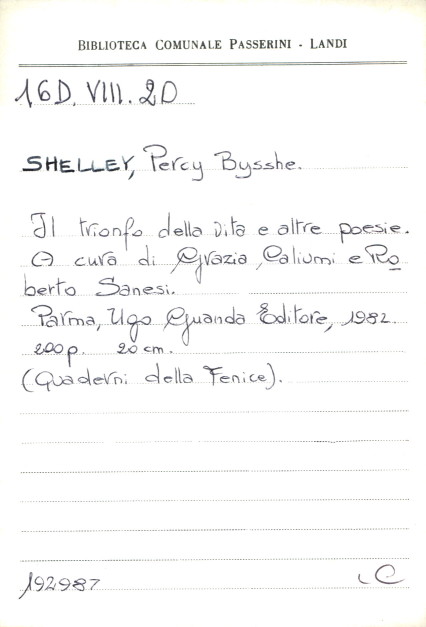 BIBLIOTECA COMUNALE PASSERINI - LANDI
16D. VIII. 20
SHELLEY, Percy Bysshe.
Il trionfo della vita e altre poesie.
A cura di Grazia Caliumi e Ro
berto Sanesi.
Parma, Ugo Guanda Editore, 1982.
200 p. 20 cm.
(Quaderni della Fenice).
192987